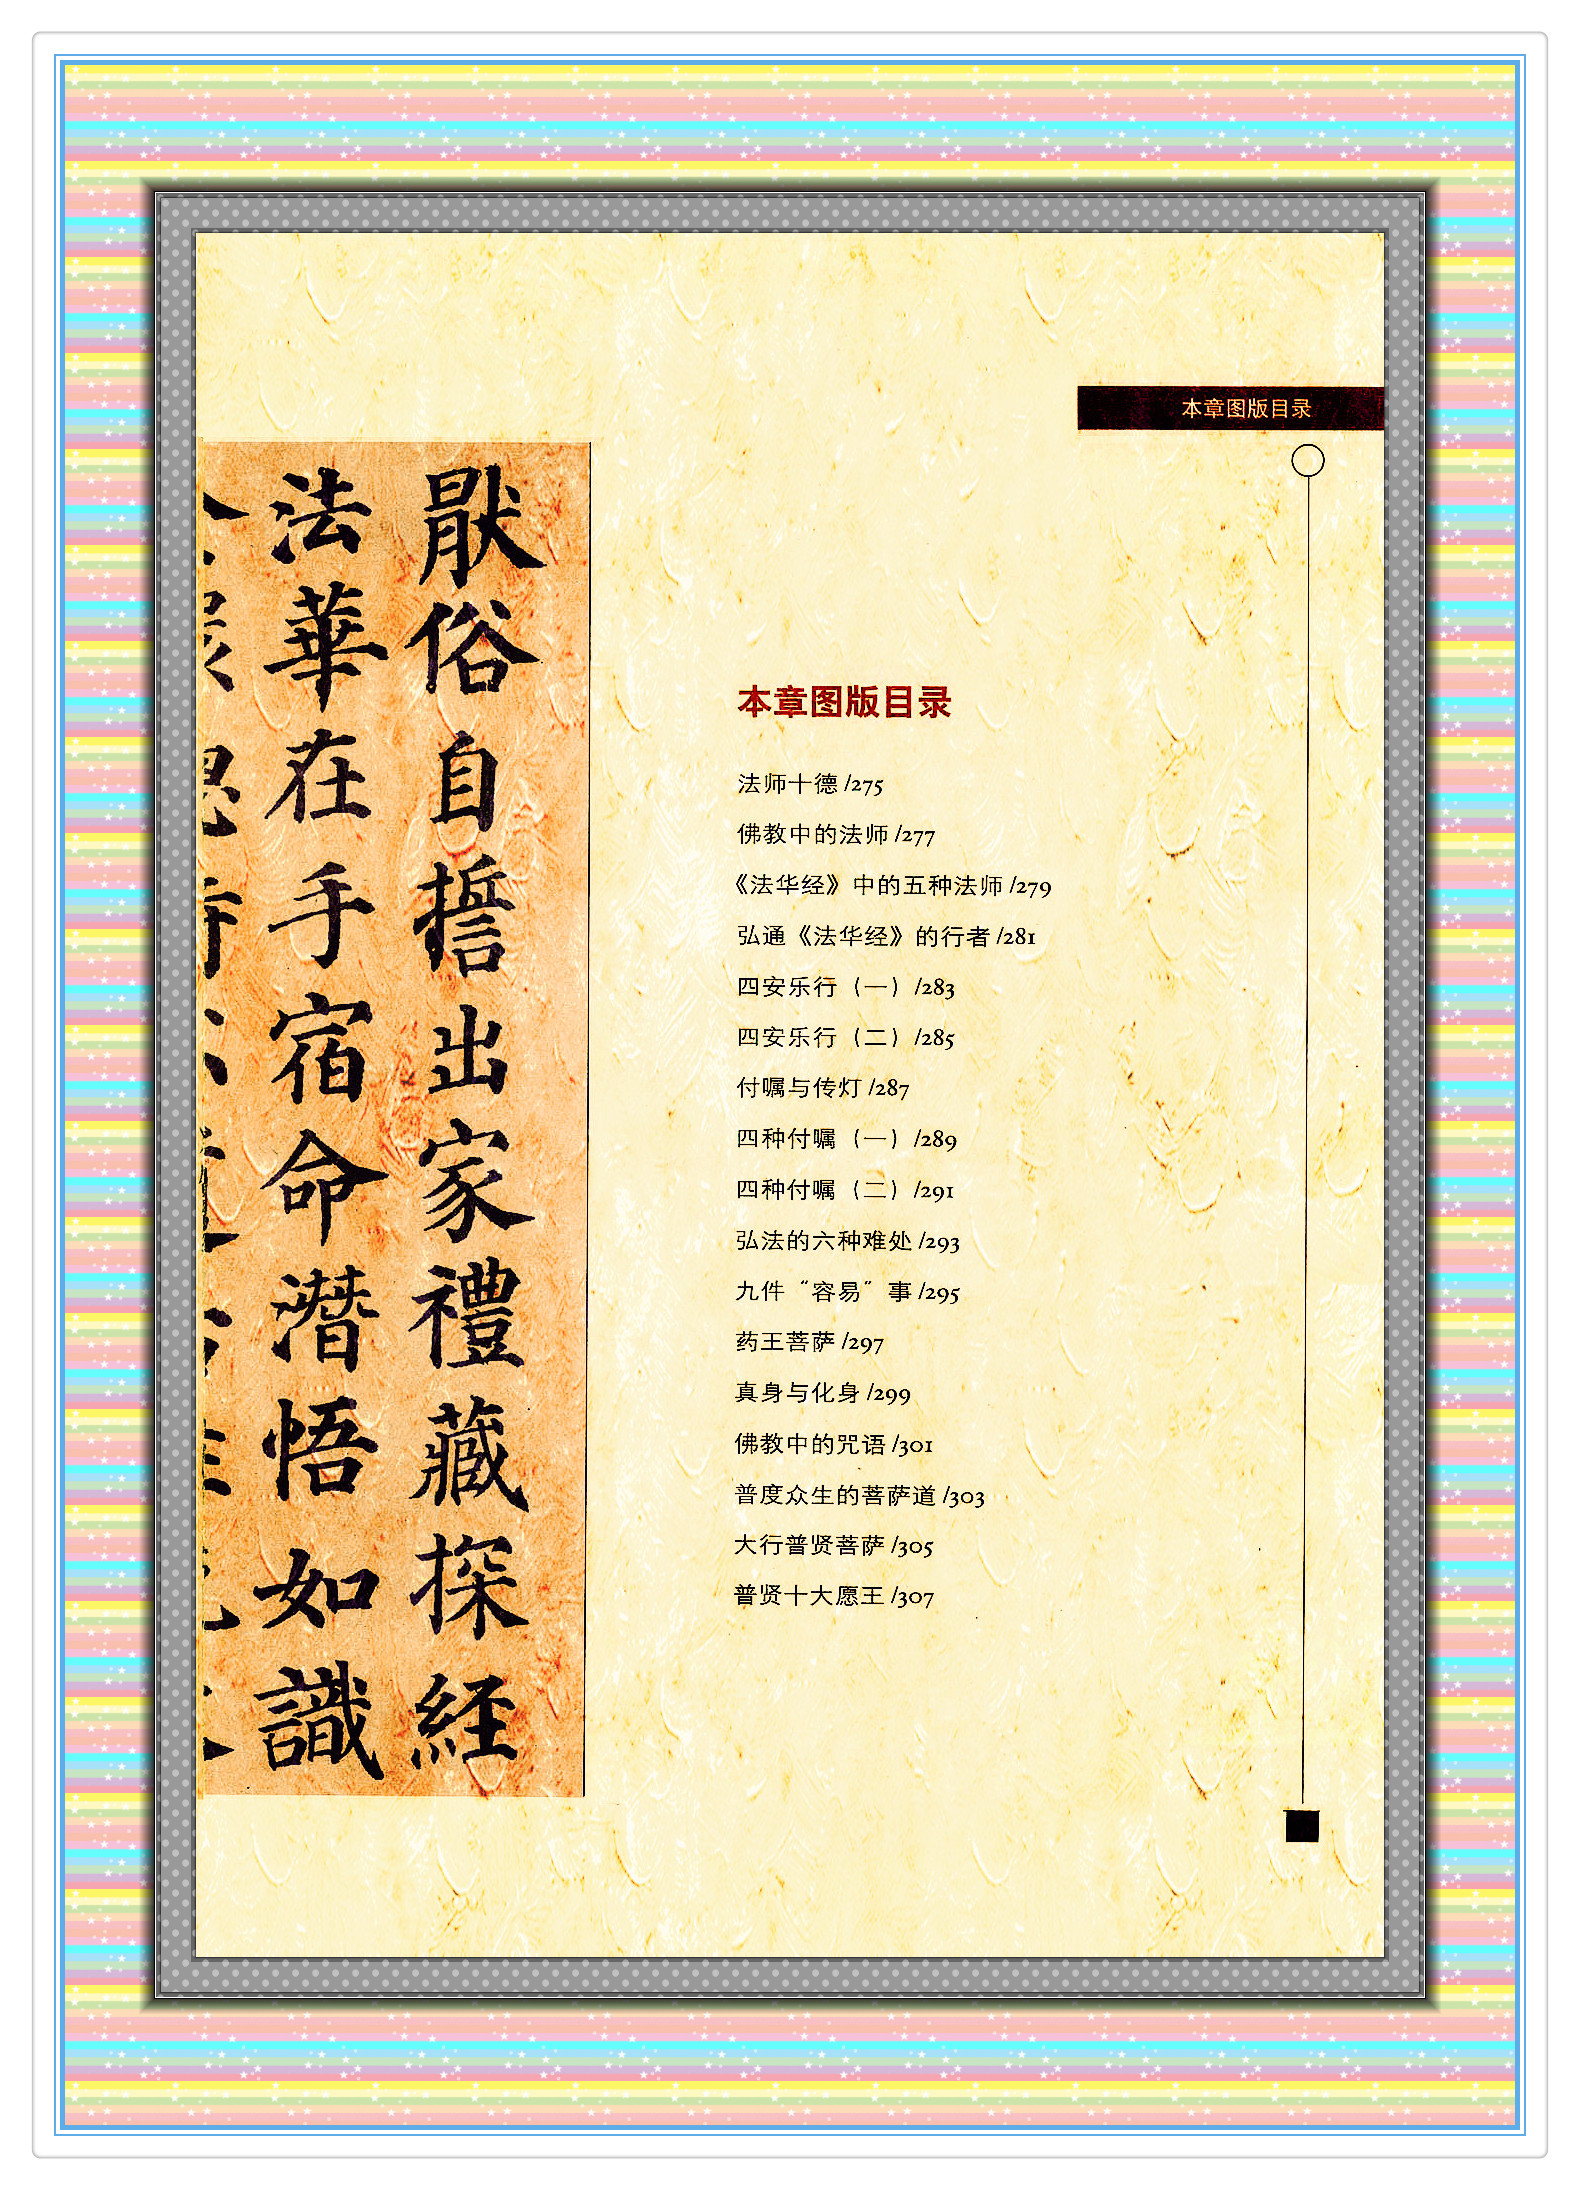 本章图版目录
厭俗自誓出家禮藏探经
法華在手宿命潛悟如識
本章图版目录
法师十德 /275
佛教中的法师 /277
《法华经》中的五种法师 /279
弘通《法华经》的行者 /281
四安乐行（一）/283
四安乐行（二）/285
付嘱与传灯 /287
四种付嘱（一）/289
四种付嘱（二）/291
弘法的六种难处 /293
九件“容易”事 /295
药王菩萨 /297
真身与化身 /299
佛教中的咒语 /301
普度众生的菩萨道 /303
大行普贤菩萨 /305
普贤十大愿王 /307